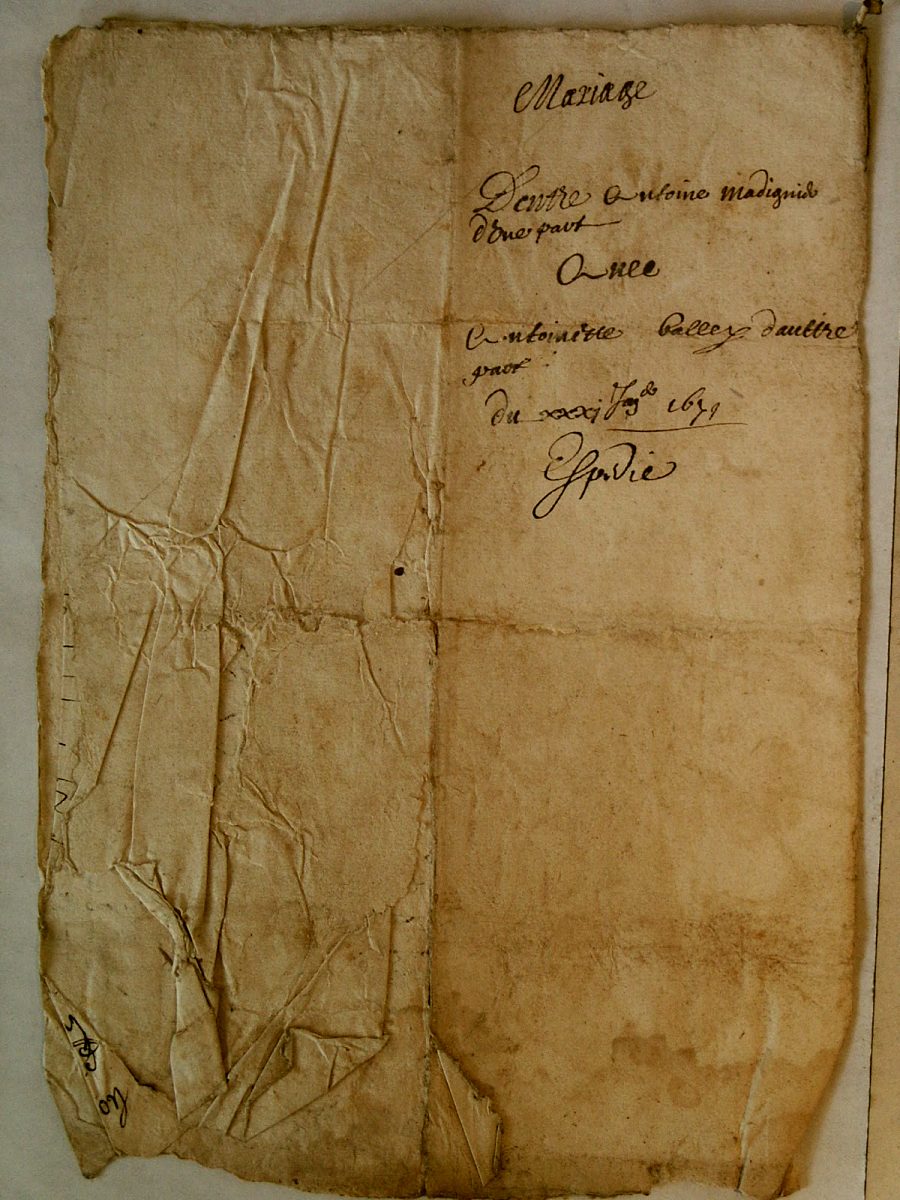 Mariage
Dentre Antoine madignie
dune part
Avec
Antoinette ballex dauttre
part
du xxxj 1679